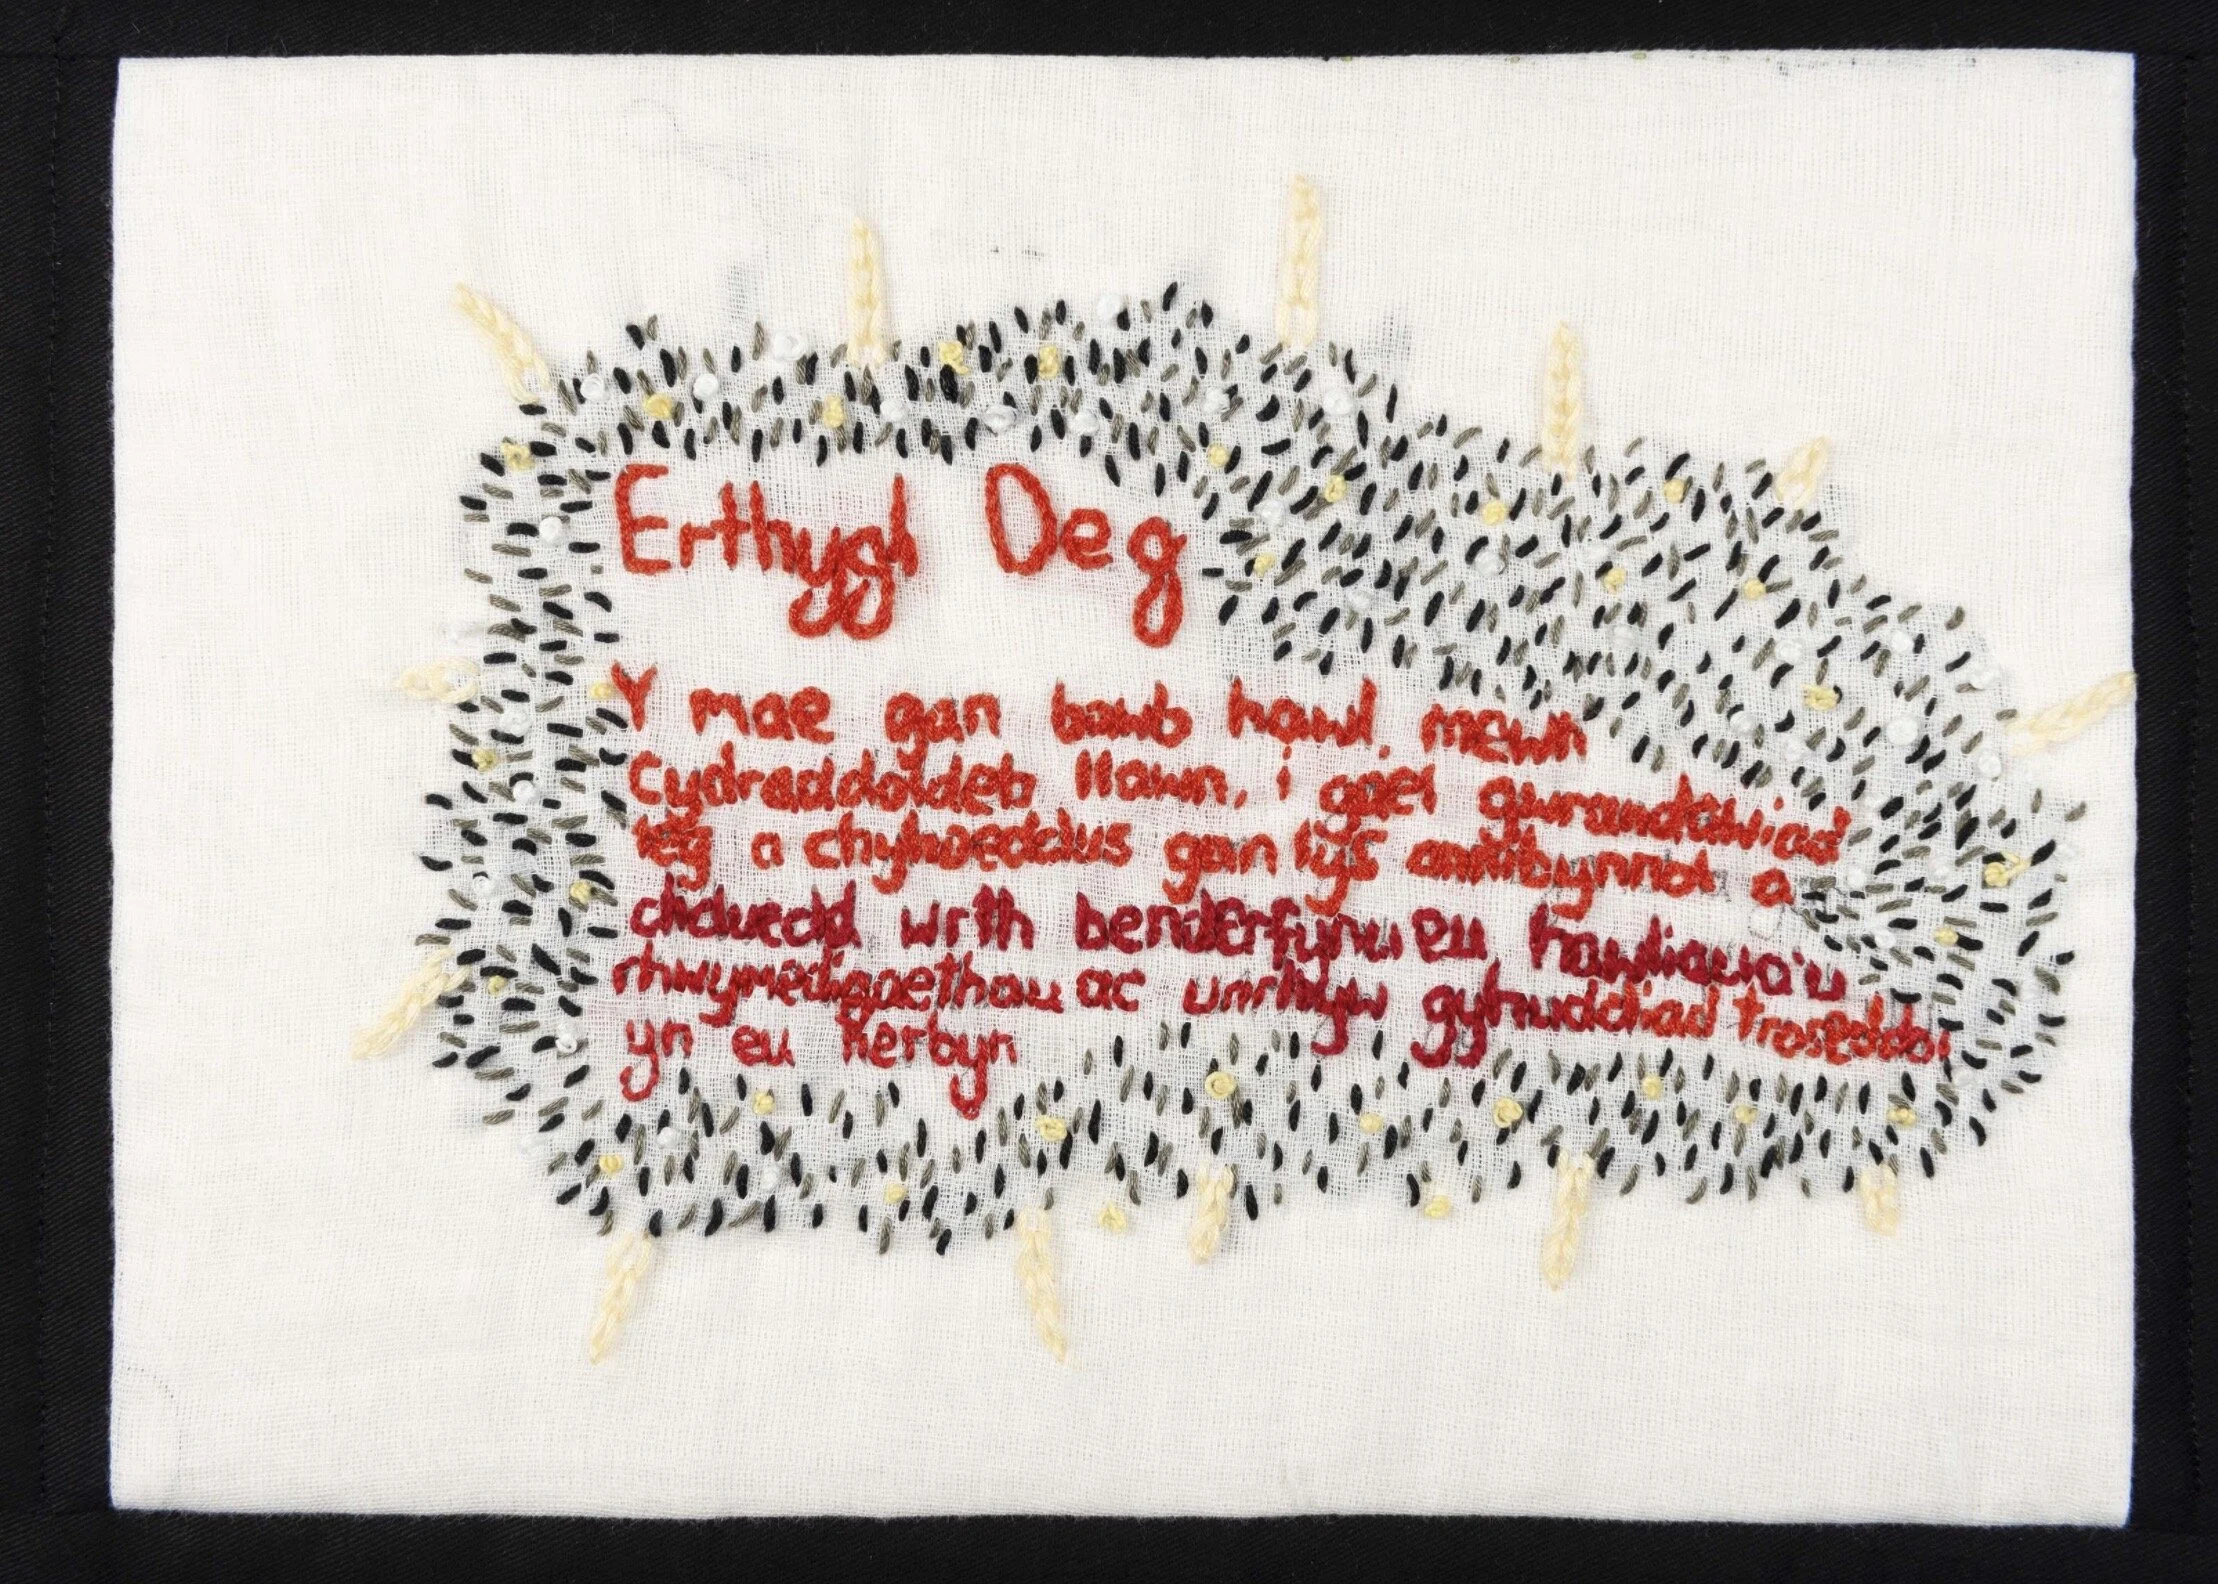 Erthygl Deg
Y mae gan bawb hawl, mewn
Cydraddoldeb llawn, i gael gwrandawiad
teg a chyhoeddus gan lys annibynnol a
diduedd wrth benderfynu eu hawliau a'u
rhwymedigaethau ac unrhyw gyhuddiad troseddol
yn eu herbyn